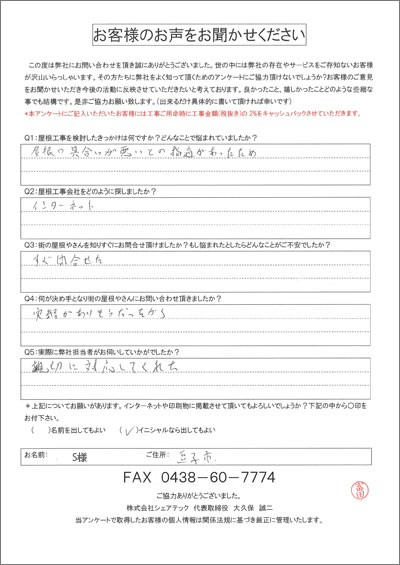 お客様のお声をお聞かせください
この度は弊社にお問い合わせを頂き誠にありがとうございました。世の中には弊社の存在やサービスをご存知ないお客様
が沢山いらっしゃいます。その方たちに弊社をよく知って頂くためのアンケートにご協力頂けないでしょうか?お客様のご意見
をお聞かせいただき今後の活動に反映させていただきたいと考えております。良かったこと、嬉しかったことどのような些細な
事でも結構です。是非ご協力お願い致します。(出来るだけ具体的に書いて頂ければ幸いです)
*本アンケートにご記入いただいたお客様には工事ご用命時に工事金額(税抜き)の2%をキャッシュバックさせていただきます。
Q1:屋根工事を検討したきっかけは何ですか?どんなことで悩まれていましたか?
屋根の具合いが悪いとの指摘があったため
Q2:屋根工事会社をどのように探しましたか?
インターネット
Q3:街の屋根やさんを知りすぐにお問合せ頂けましたか?もし悩まれたとしたらどんなことがご不安でしたか?
すぐ問合せた
Q4:何が決め手となり街の屋根やさんにお問い合わせ頂きましたか?
実績がありそうだったから
Q5:実際に弊社担当者がお伺いしていかがでしたか?
親切に対応してくれた
*上記についてお願いがあります。インターネットや印刷物に掲載させて頂いてもよろしいでしょうか?下記の中から〇印を
お付下さい。
( )名前を出してもよい (✓)イニシャルなら出してもよい
お名前: S様 ご住所: 逗子市
FAX 0438-60-7774
ご協力ありがとうございました。
株式会社シェアテック 代表取締役 大久保 誠二
当アンケートで取得したお客様の個人情報は関係法規に基づき厳正に管理いたします。